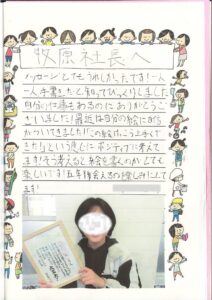 牧原社長へ
メッセージとてもうれしかったです!一人
一人手書きだと知ってびっくりしました
自分の仕事もあるのにありがとうご
ざいました!最近は自分の絵に自信
がついてきました!「この絵はこう上手くで
きたな」という感じにポジティブに考えて
ます!そう考えると絵を書くのがとても
楽しいです!五年後会えるの楽しみにして
ます!